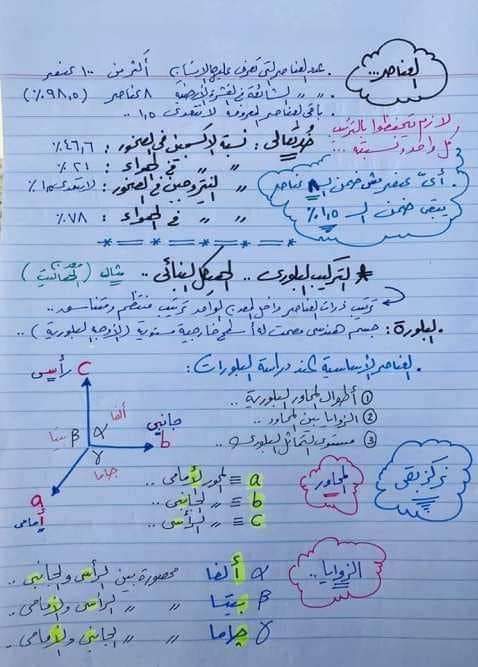 العناصر...
- عدد العناصر التي تعرف عليها الإنسان أكثر من ١٠٠ عنصر
- " " الشائعة في القشرة الأرضية ٨ عناصر (٩٨,٥٪)
- باقي العناصر المعروفة لا تتعدى ١,٥٪
لازم تحفظوا بالترتيب
كل واحد ونسبته...
خد بالك: نسبة الأكسجين في الصخور: ٤٦,٦٪
" " في الهواء: ٢١٪
" النيتروجين في الصخور: لا يتعدى ١,٥٪
" " في الهواء: ٧٨٪
. أي عنصر مش ضمن الـ ٨ عناصر
يبقى ضمن الـ ١,٥٪
* التركيب البلوري.. الهيكل البنائي.. مثال (معدن الهاليت)
ترتيب ذرات العناصر داخل المعدن الواحد ترتيب منتظم ومتناسق..
البلورة: جسم هندسي مصمت له أسطح خارجية مستوية (الأوجه البلورية)..
. العناصر الأساسية عند دراسة البلورات:
① أطوال المحاور البلورية..
② الزوايا بين المحاور..
③ مستوى التماثل البلوري..
رأسي C
ألفا
جانبي
بيتا β α b
γ
جاما
a
أمامي
نركز بقى
المحاور
a ≡ المحور الأمامي..
b ≡ " الجانبي..
c ≡ " الرأسي..
الزوايا..
α ألفا محصورة بين الرأسي والجانبي..
β بيتا " " الرأسي والأمامي..
γ جاما " " الجانبي والأمامي..